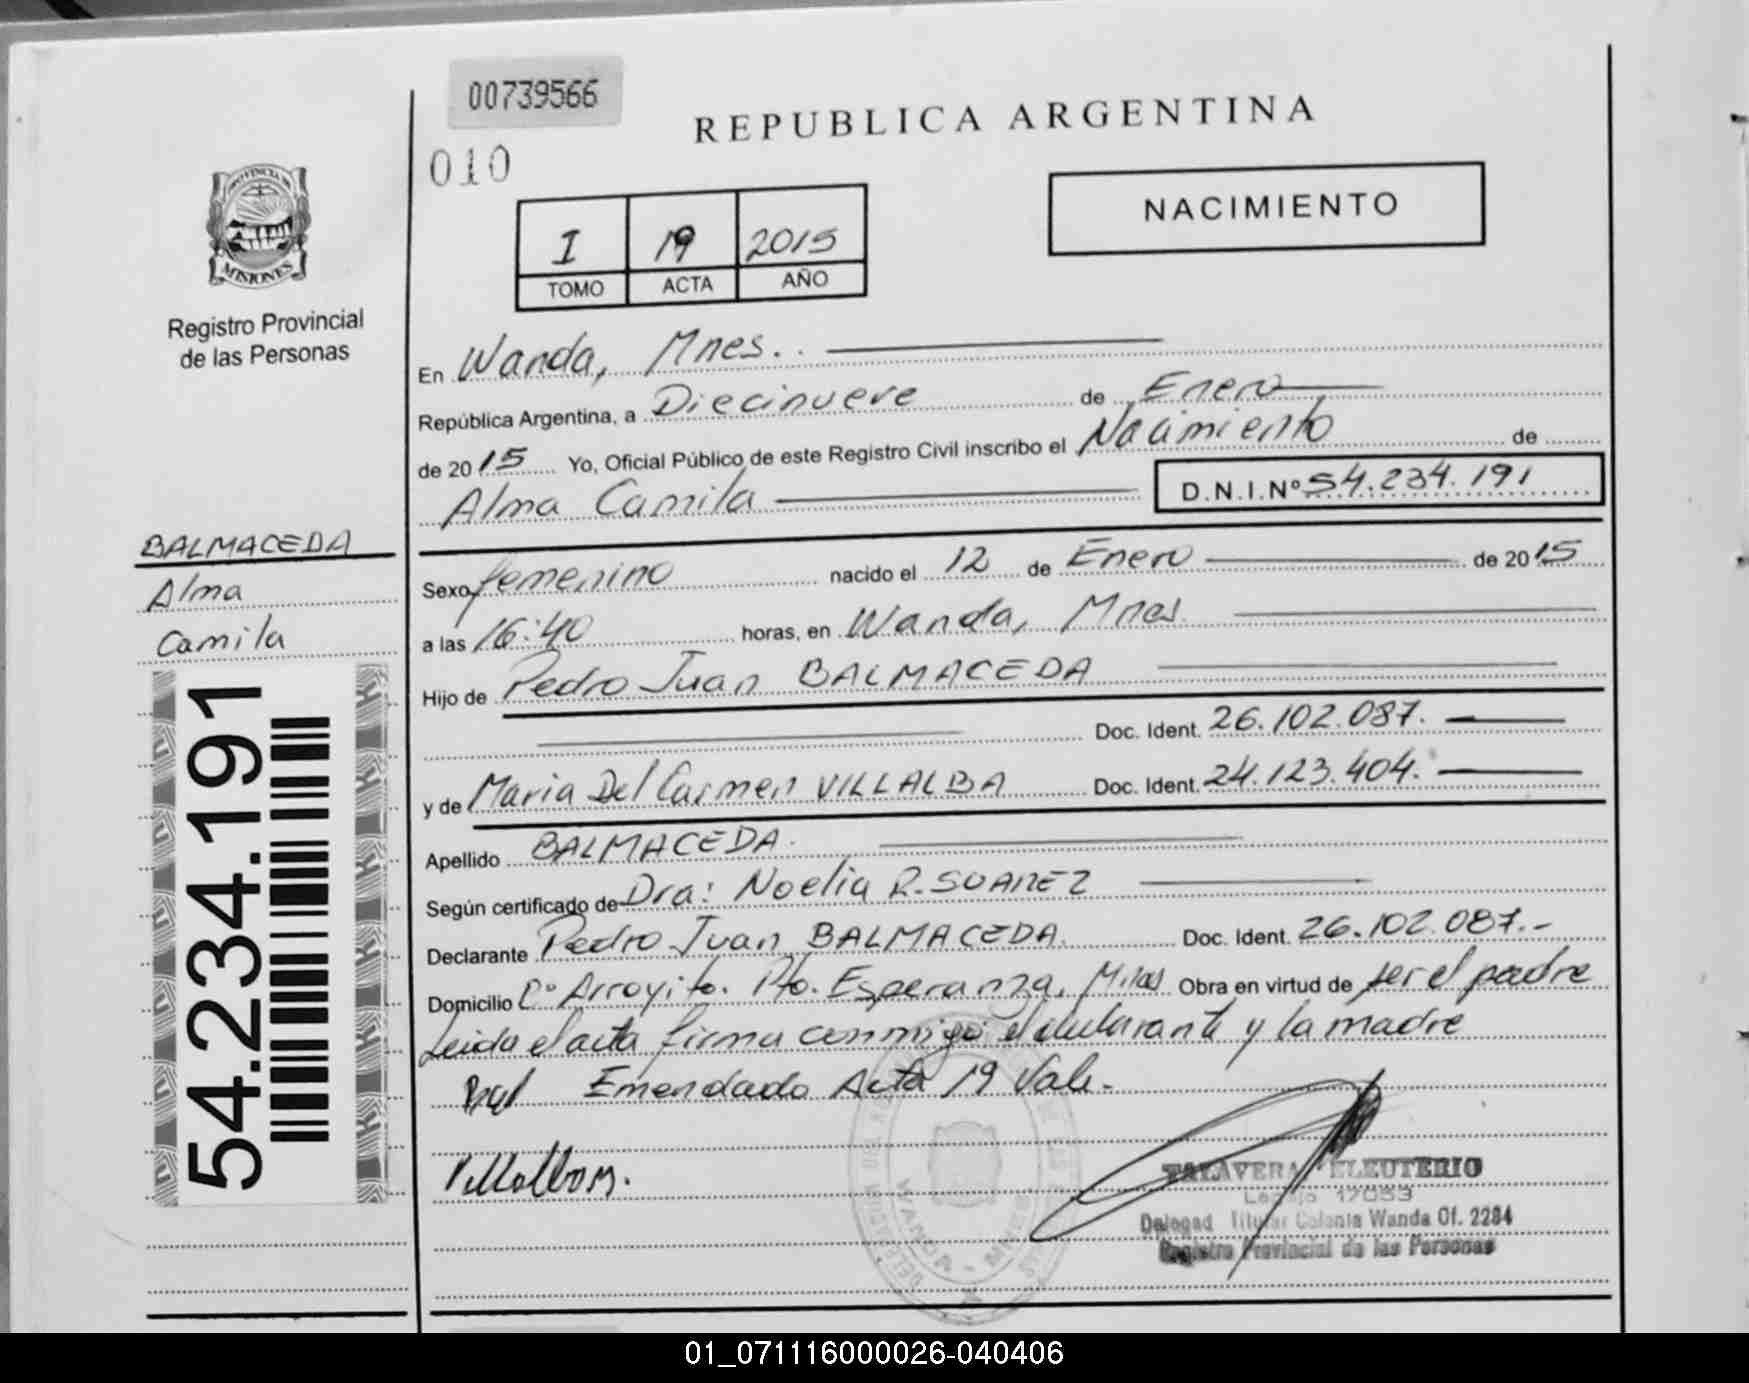 00739566
REPUBLICA ARGENTINA
010
NACIMIENTO
I 19 2015
TOMO ACTA AÑO
PROVINCIA DE
MISIONES
Registro Provincial
de las Personas
En Wanda, Mnes.
República Argentina, a Diecinueve de Enero
de 2015 Yo, Oficial Público de este Registro Civil inscribo el Nacimiento de
Alma Camila D.N.I.Nº 54.234.191
BALMACEDA
Alma
Camila
54.234.191
Sexo femenino nacido el 12 de Enero de 2015
a las 16:40 horas, en Wanda, Mnes.
Hijo de Pedro Juan BALMACEDA
Doc. Ident. 26.102.087.
y de Maria Del Carmen VILLALBA Doc. Ident. 24.123.404.
Apellido BALMACEDA.
Según certificado de Dra: Noelia R. SUAREZ
Declarante Pedro Juan BALMACEDA. Doc. Ident. 26.102.087.-
Domicilio Bº Arroyito. Pto. Esperanza, Mnes Obra en virtud de ser el padre
Leida el acta firma conmigo el declarante y la madre
Emendado Acta 19 Vale.-
TALAVERA ELEUTERIO
Legajo 17053
Delegad Titular Colonia Wanda Of. 2284
Registro Provincial de las Personas
WANDA - MNES
01_071116000026-040406